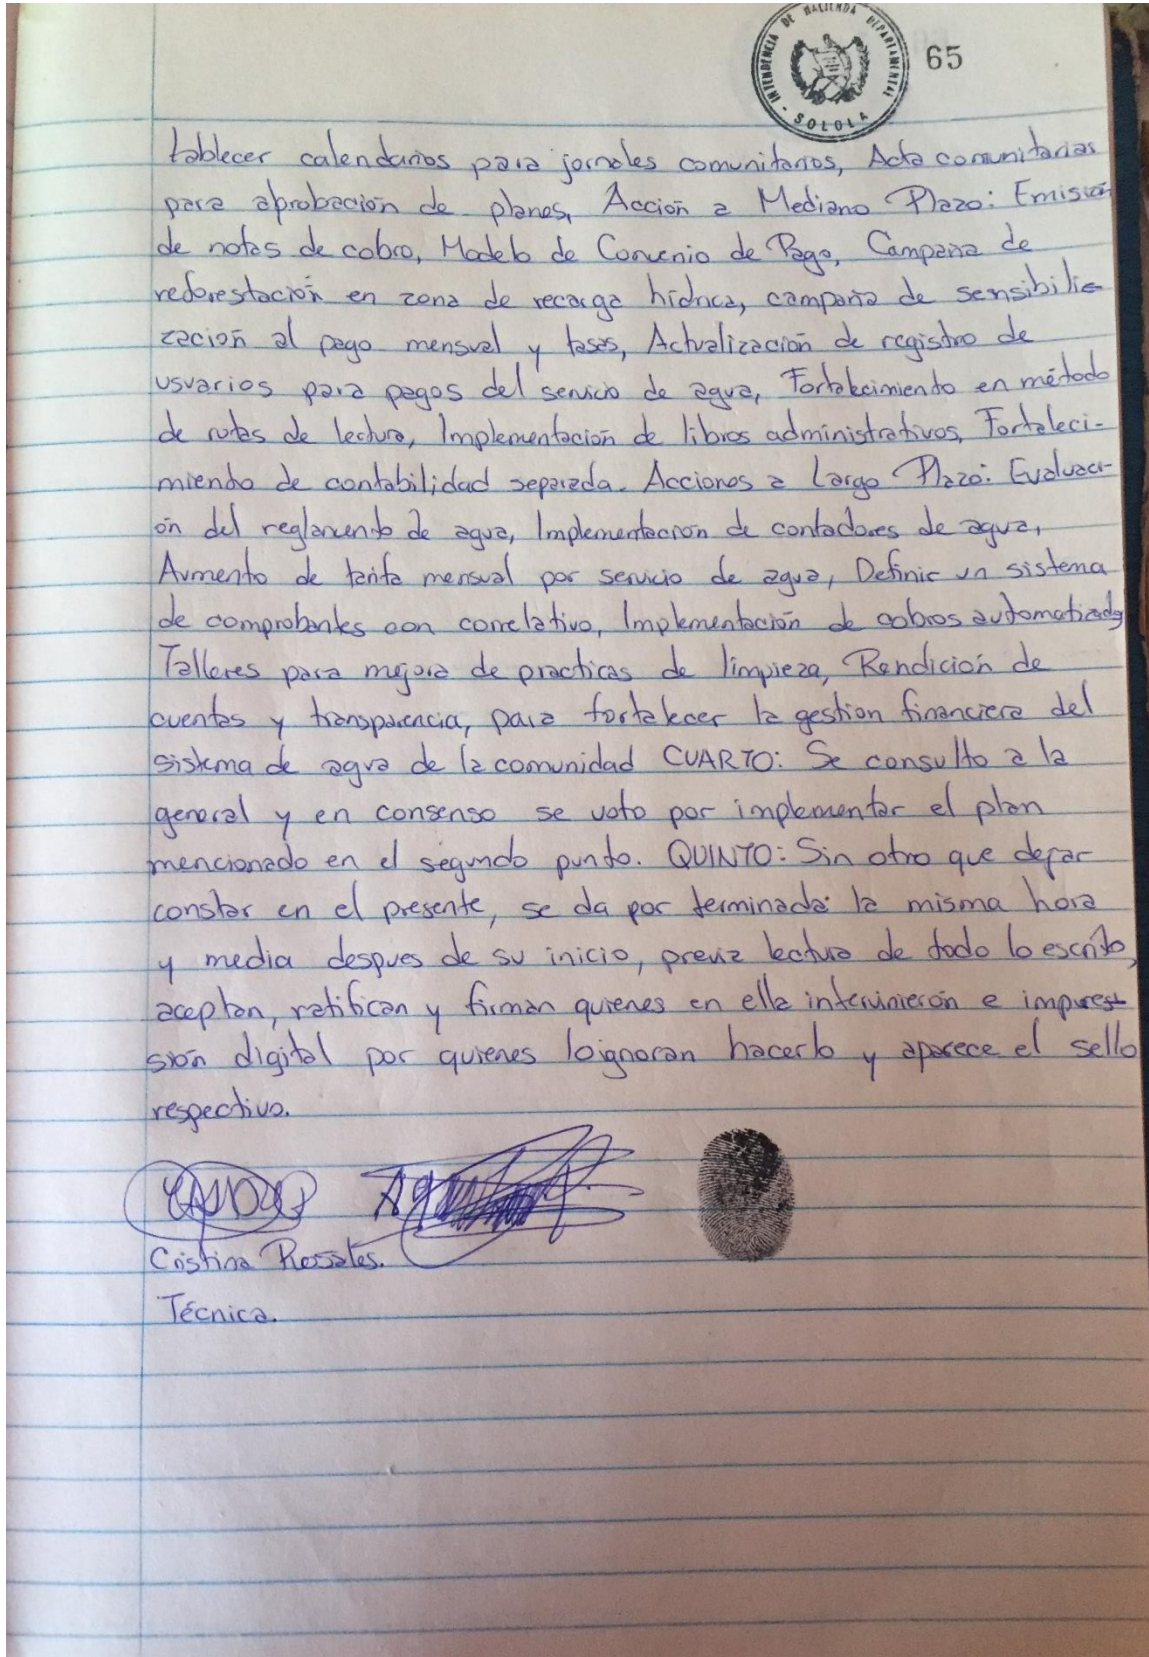 INTENDENCIA DE HACIENDA DEPARTAMENTAL - SOLOLA
65
tablecer calendarios para jornales comunitarios, Acta comunitarias
para aprobación de planes, Acción a Mediano Plazo: Emisión
de notas de cobro, Modelo de Convenio de Pago, Campaña de
reforestación en zona de recarga hídrica, campaña de sensibili-
zación al pago mensual y tasas, Actualización de registro de
usuarios para pagos del servicio de agua, Fortalecimiento en método
de rutas de lectura, Implementación de libros administrativos, Fortaleci-
miento de contabilidad separada. Acciones a Largo Plazo: Evaluaci-
ón del reglamento de agua, Implementación de contadores de agua,
Aumento de tarifa mensual por servicio de agua, Definir un sistema
de comprobantes con correlativo, Implementación de cobros automatizados
Talleres para mejora de practicas de limpieza, Rendición de
cuentas y transparencia, para fortalecer la gestion financiera del
sistema de agua de la comunidad CUARTO: Se consulto a la
general y en consenso se voto por implementar el plan
mencionado en el segundo punto. QUINTO: Sin otro que dejar
constar en el presente, se da por terminada la misma hora
y media despues de su inicio, previa lectura de todo lo escrito,
aceptan, ratifican y firman quienes en ella intervinierón e impres-
sión digital por quienes loignoran hacerlo y aparece el sello
respectivo.
Cristina Rosales.
Técnica.